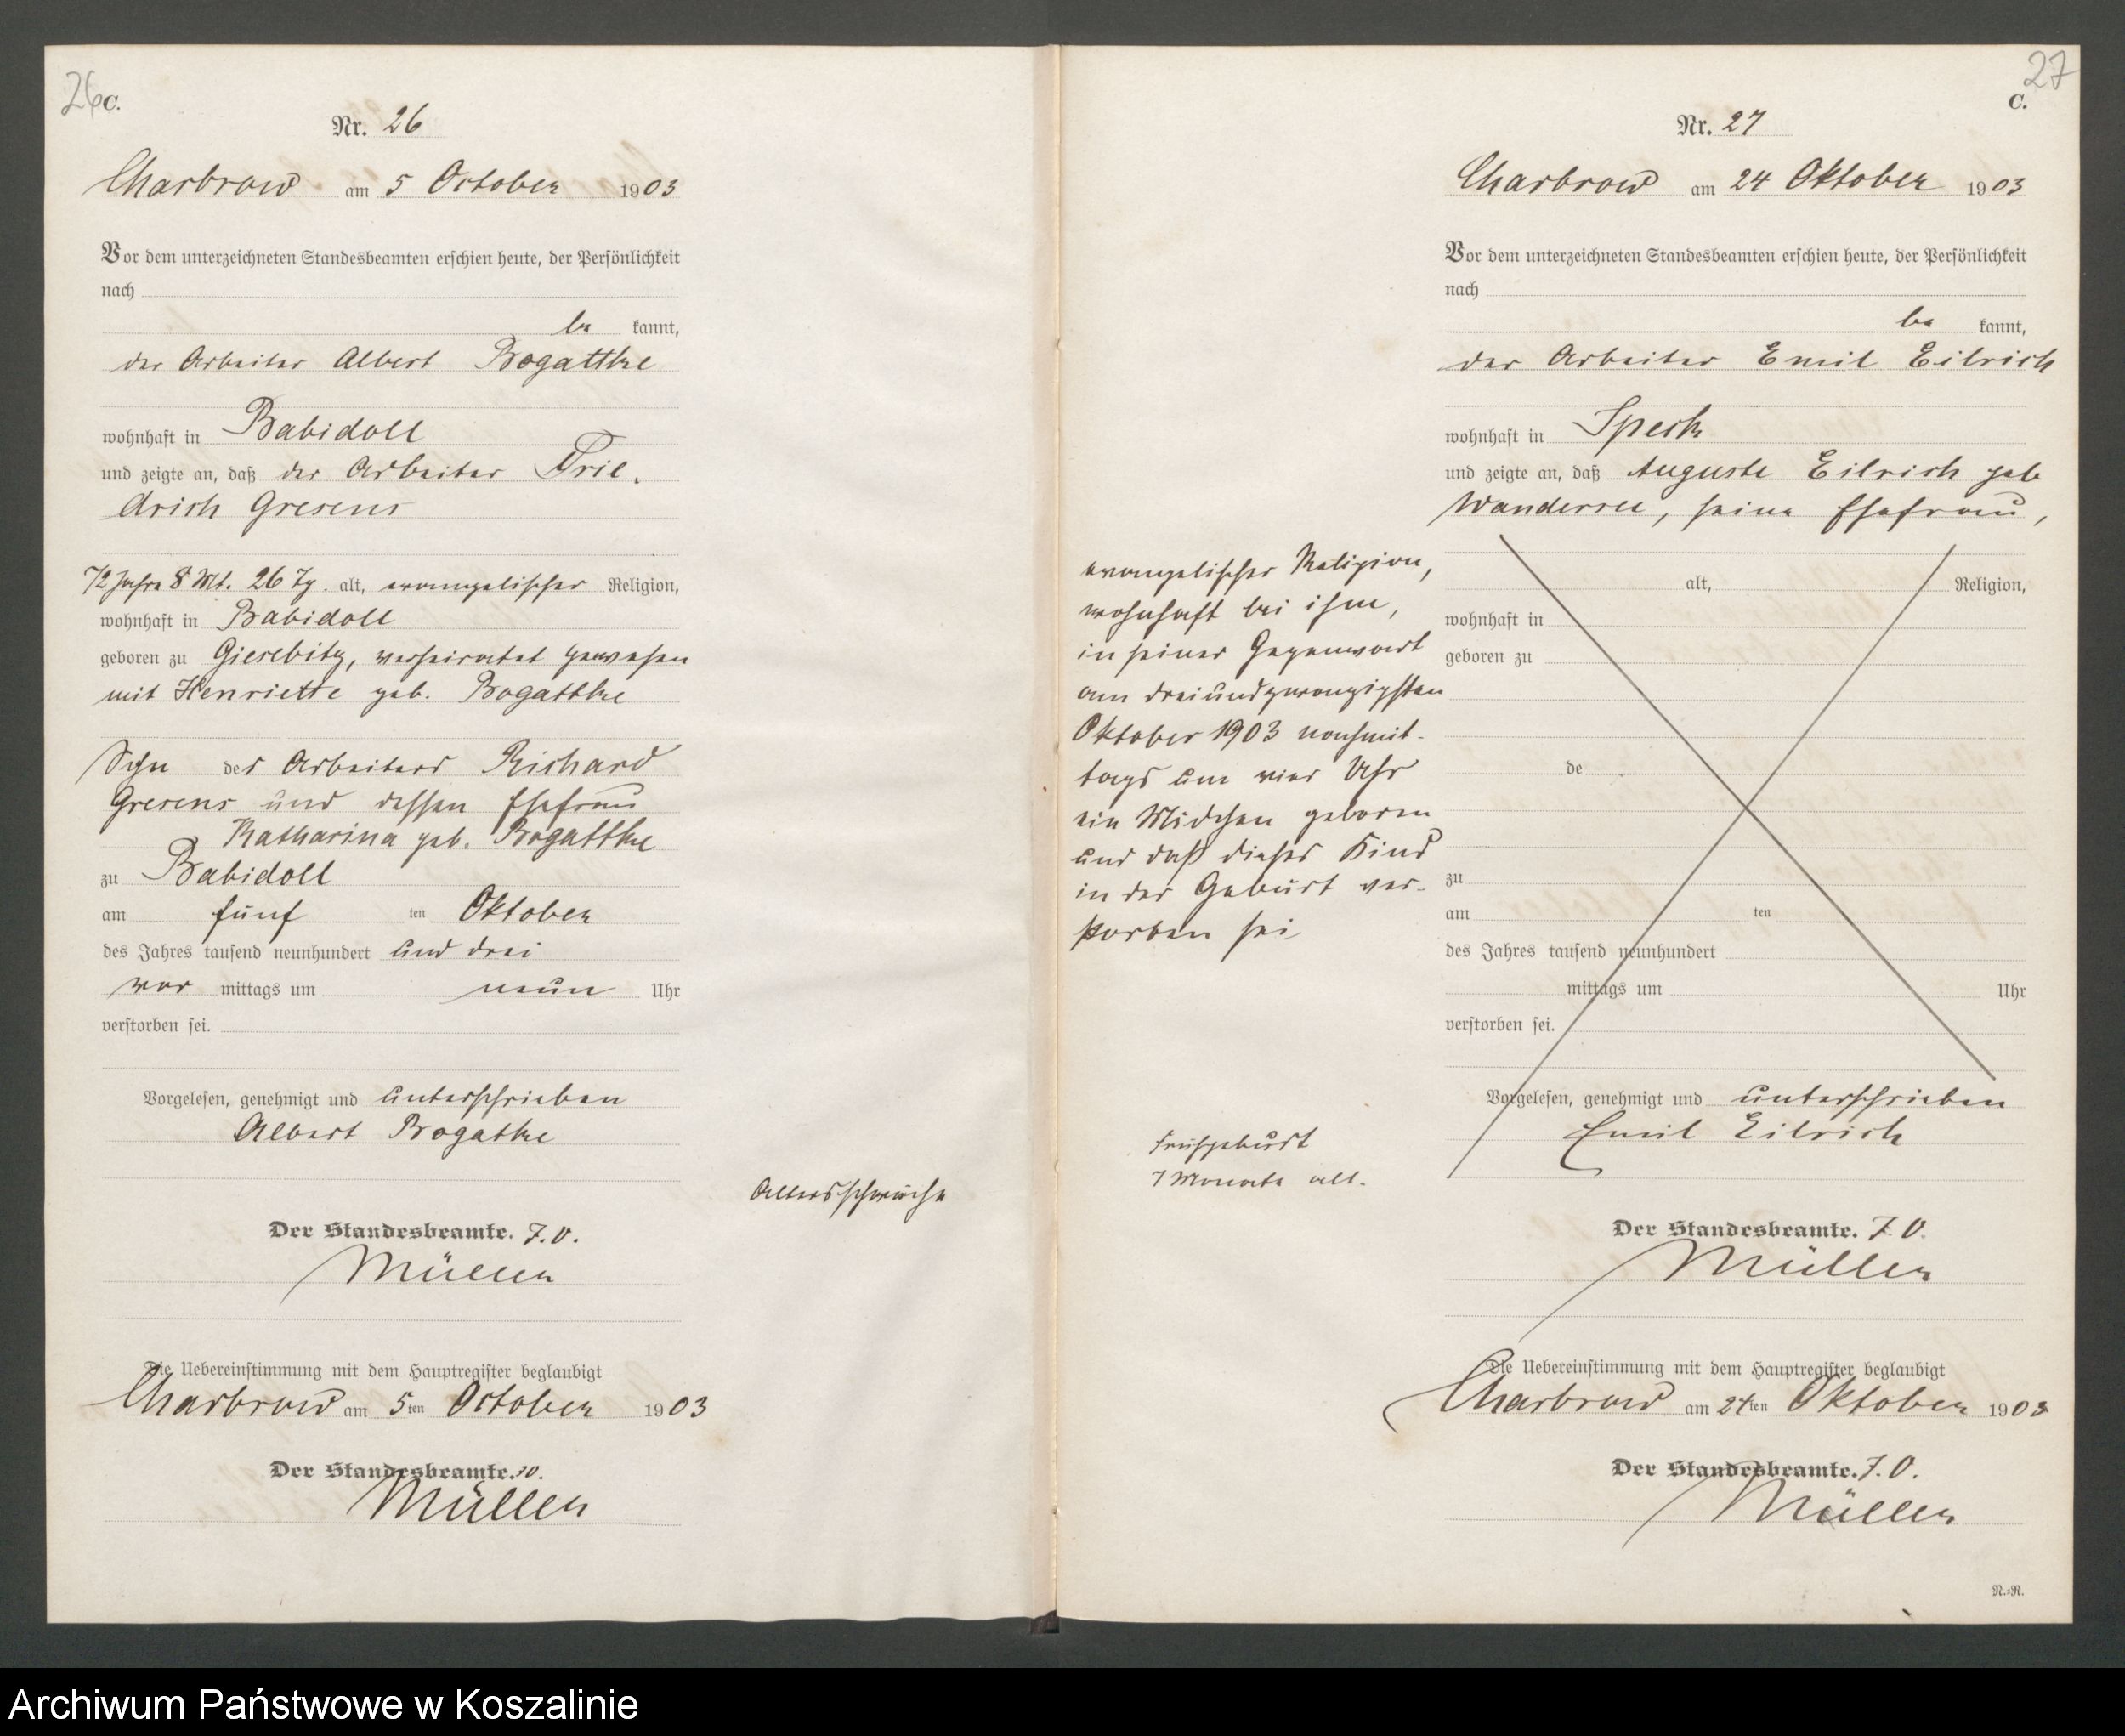 26
C.
Nr. 26
Charbrow am 5 October 1903
Vor dem unterzeichneten Standesbeamten erschien heute, der Persönlichkeit
nach
be kannt,
der Arbeiter Albert Bogattke
wohnhaft in Babidoll
und zeigte an, daß der Arbeiter Frie-
drich Gresens
72 Jahre 8 Mt. 26 Tg. alt, evangelischer Religion,
wohnhaft in Babidoll
geboren zu Giesebitz, verheiratet gewesen
mit Henriette geb. Bogattke
Sohn des Arbeiters Richard
Gresens und dessen Ehefrau
Katharina geb. Bogattke
zu Babidoll
am fünf ten Oktober
des Jahres tausend neunhundert und drei
vor mittags um neun Uhr
verstorben sei.
Vorgelesen, genehmigt und unterschrieben
Albert Bogattke
Altersschwäche
Der Standesbeamte. F.O.
Müller
Die Uebereinstimmung mit dem Hauptregister beglaubigt
Charbrow am 5ten October 1903
Der Standesbeamte.
Müller
27
C.
Nr. 27
Charbrow am 24 Oktober 1903
Vor dem unterzeichneten Standesbeamten erschien heute, der Persönlichkeit
nach
be kannt,
der Arbeiter Emil Eilrich
wohnhaft in Speck
und zeigte an, daß Auguste Eilrich geb
Wandersee, seine Ehefrau,
evangelischer Religion,
wohnhaft bei ihm,
in seiner Gegenwart
am dreiundzwanzigsten
Oktober 1903 nachmit-
tags um vier Uhr
ein Mädchen geboren
und daß dieses Kind
in der Geburt ver-
storben sei
alt, Religion,
wohnhaft in
geboren zu
de
zu
am ten
des Jahres tausend neunhundert
mittags um Uhr
verstorben sei.
Vorgelesen, genehmigt und unterschrieben
Emil Eilrich
Frühgeburt
7 Monate alt.
Der Standesbeamte. F.O.
Müller
Die Uebereinstimmung mit dem Hauptregister beglaubigt
Charbrow am 24ten Oktober 1903
Der Standesbeamte. F.O.
Müller
N.=N.
Archiwum Państwowe w Koszalinie